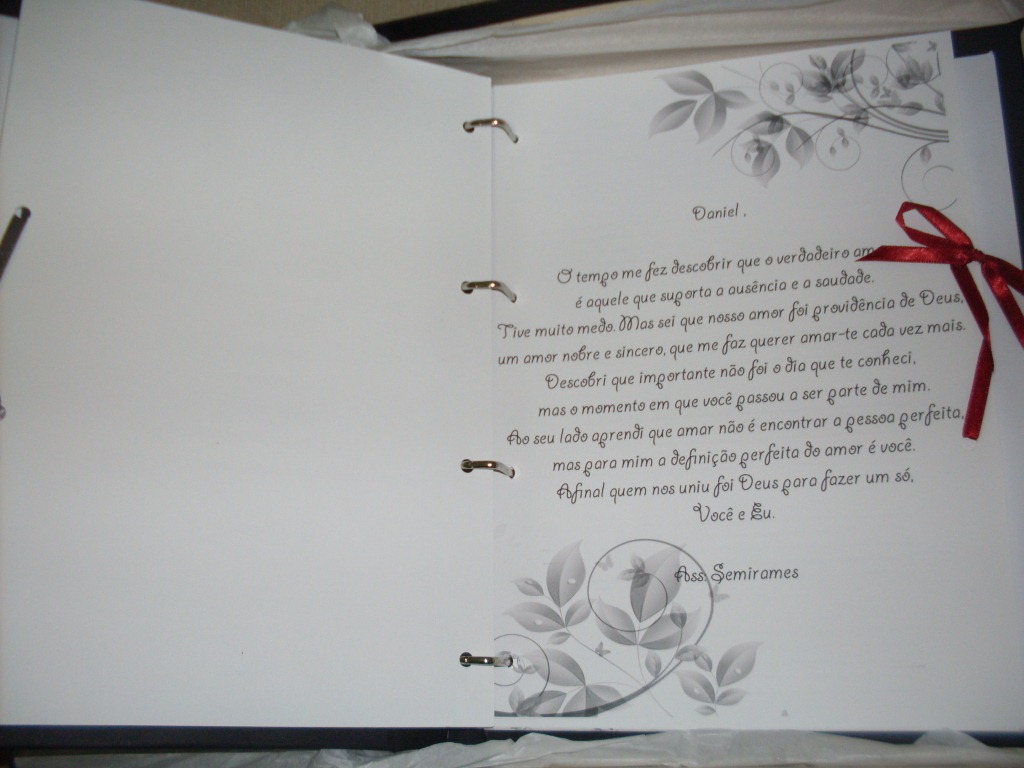 Daniel ,
O tempo me fez descobrir que o verdadeiro am
é aquele que suporta a ausência e a saudade.
Tive muito medo. Mas sei que nosso amor foi providência de Deus,
um amor nobre e sincero, que me faz querer amar-te cada vez mais.
Descobri que importante não foi o dia que te conheci,
mas o momento em que você passou a ser parte de mim.
Ao seu lado aprendi que amar não é encontrar a pessoa perfeita,
mas para mim a definição perfeita do amor é você.
Afinal quem nos uniu foi Deus para fazer um só,
Você e Eu.
Ass: Semirames